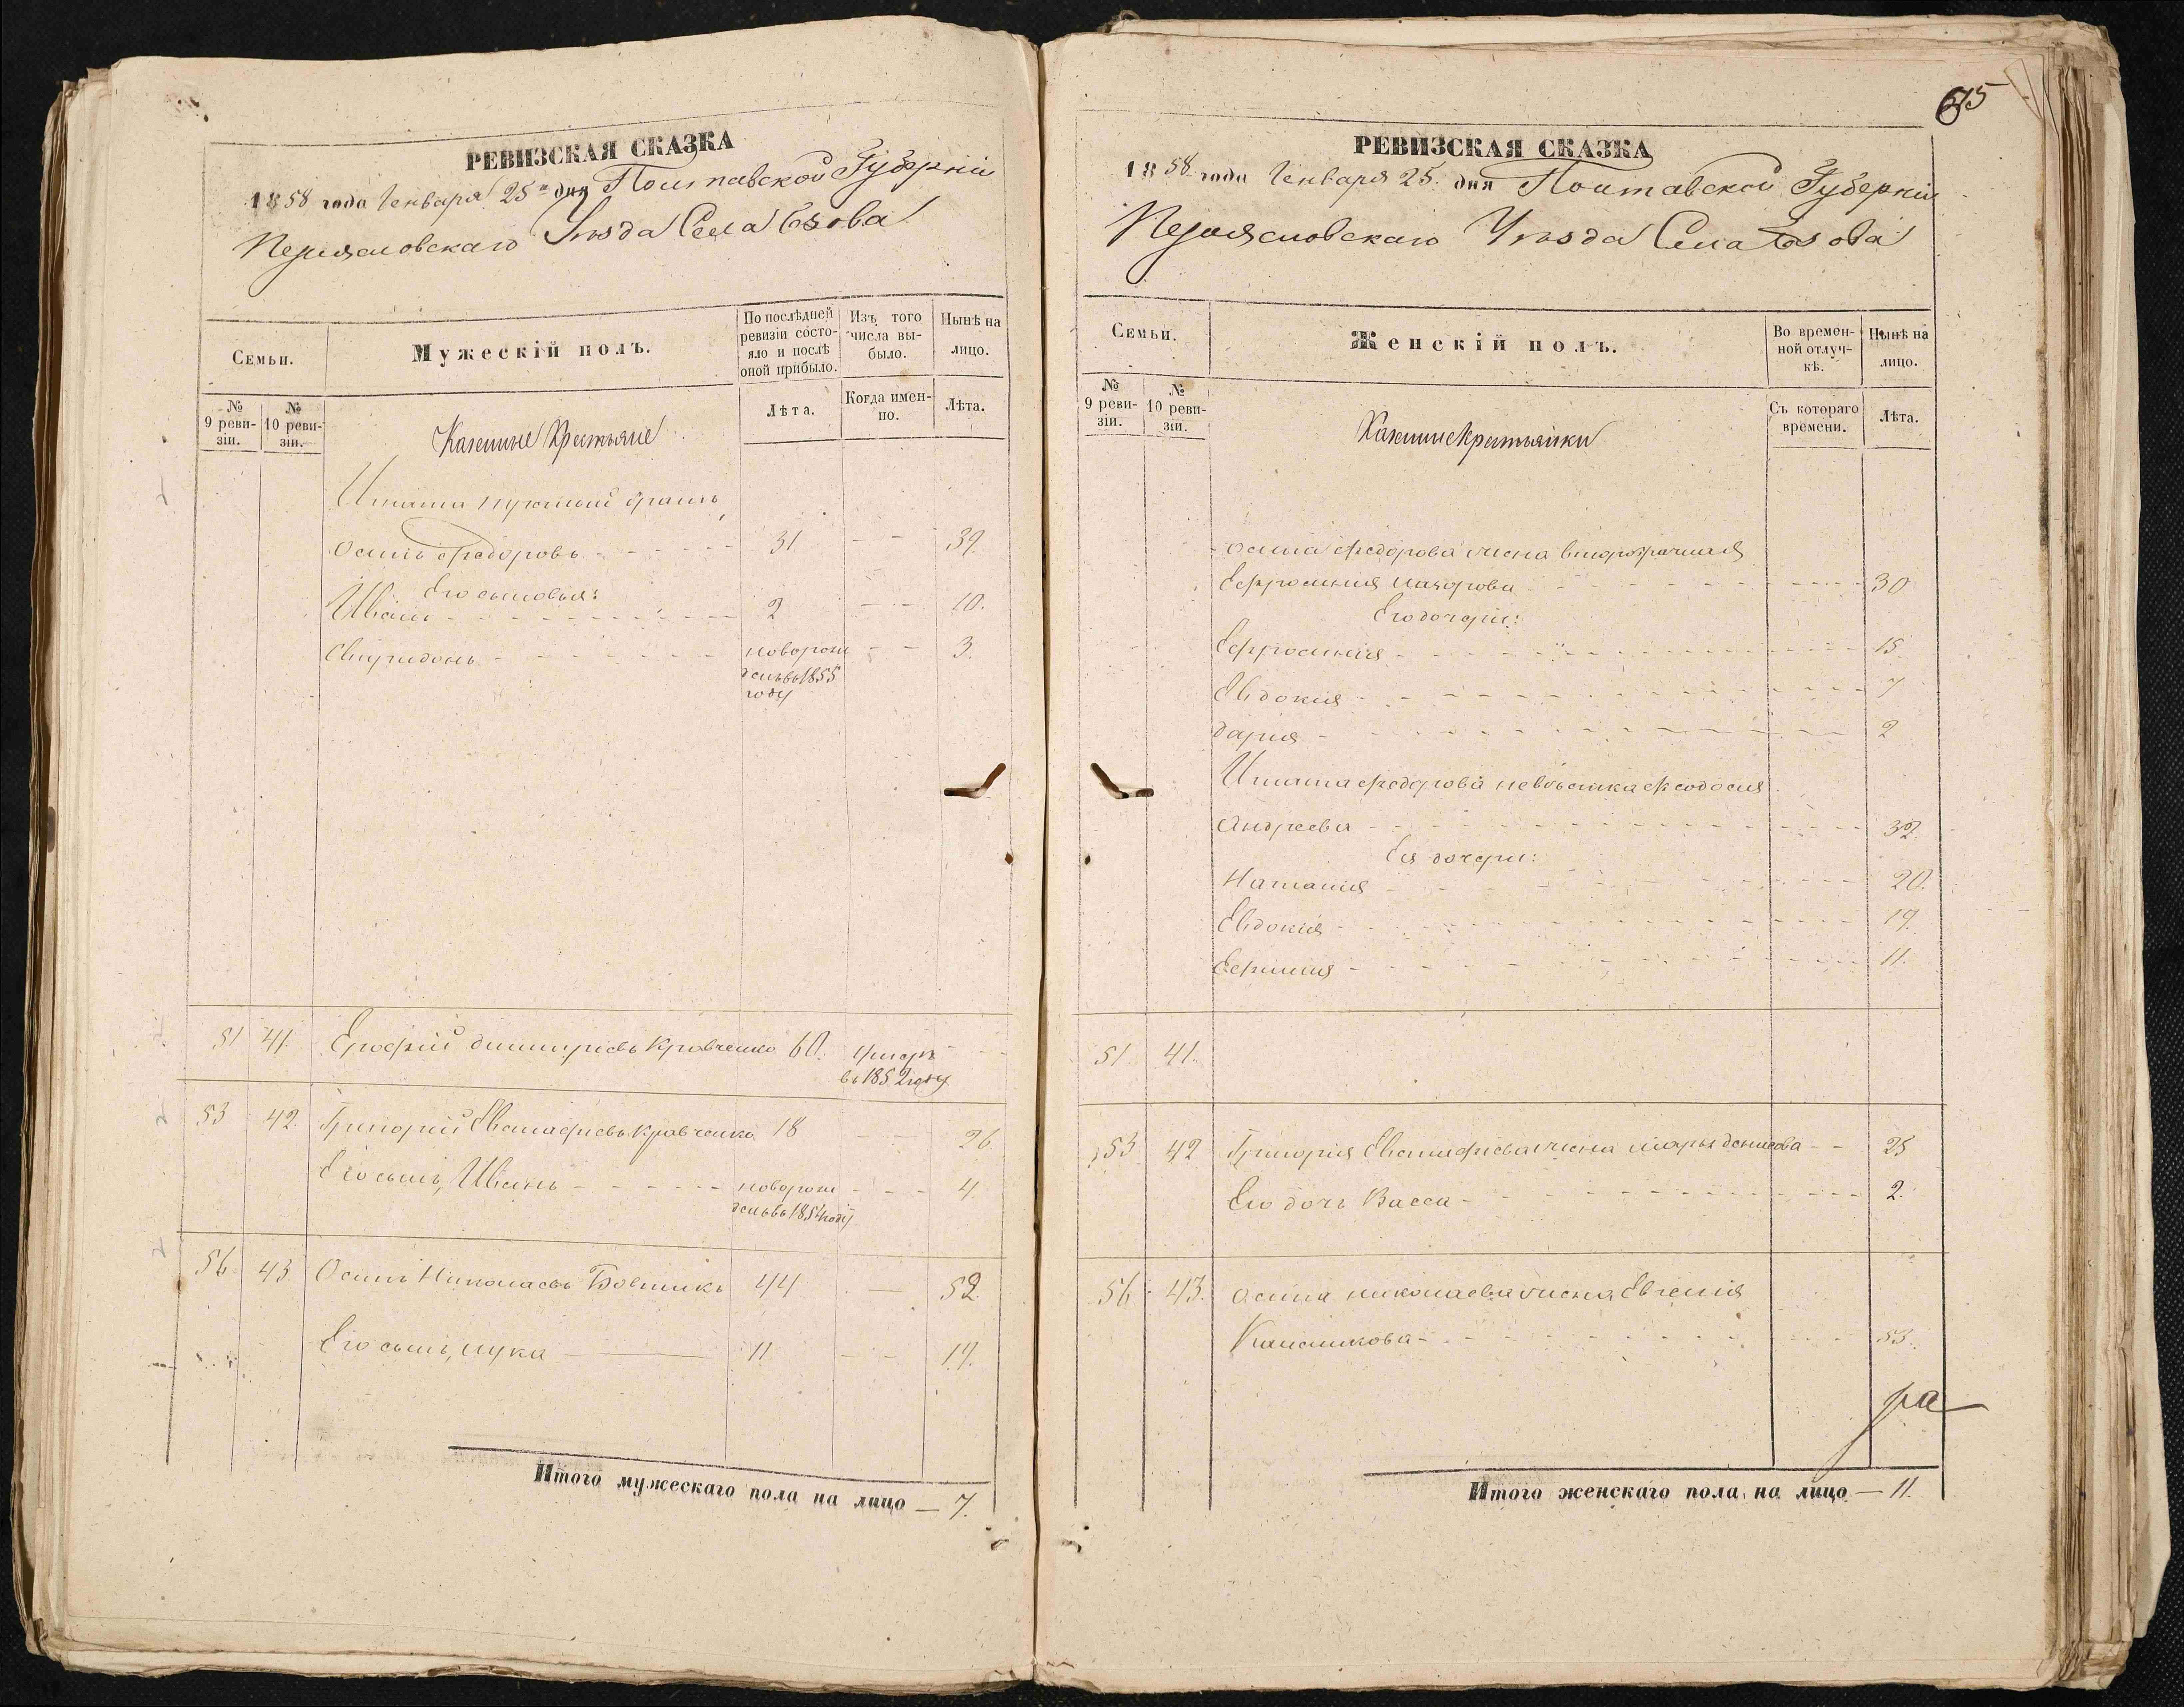 РЕВИЗСКАЯ СКАЗКА
1858 года Генваря 25го дня Полтавской Губерніи
Переясловскаго Уѣзда Села
Семьи.
Мужескій полъ.
По послѣдней ревизіи состояло и послѣ оной прибыло.
Изъ того числа выбыло.
Нынѣ на лицо.
№ 9 ревизіи.
№ 10 ревизіи.
Казенные Крестьяне
Лѣта.
Когда именно.
Лѣта.
братъ
Осипъ Федоровъ 31 39.
Его сыновья:
Иванъ 2 10.
Свиридонъ новорож 3.
денъ въ 1855
году
51 41. Ерофѣй Дмитріевъ Кравченко 60. умеръ
въ 1852 году
53 42. Григорій Евстафіевъ Кравченко 18 26
Его сынъ, Иванъ новорож 4.
денъ въ 1854 году
56 43. Осипъ Николаевъ 44 52.
Его сынъ, Лука 11 19.
Итого мужескаго пола на лицо — 7.
675
РЕВИЗСКАЯ СКАЗКА
1858 года Генваря 25. дня Полтавской Губерніи
Переясловскаго Уѣзда Села
Семьи.
Женскій полъ.
Во временной отлучкѣ.
Нынѣ на лицо.
№ 9 ревизіи.
№ 10 ревизіи.
Казенные крестьянки
Съ котораго времени.
Лѣта.
Осипа Федорова жена второбрачная
Ефросинія Назорова 30
Его дочери:
Ефросинія 15
Евдокія 7
Дарія 2
Игната Федорова невѣстка Феодосія
Андреева 39.
Ея дочери:
Наталія 20.
Евдокія 19.
Ефимія 11.
51. 41.
53 42 Григорія Евстафіева жена Марья Денисова 25
Его дочь Васса 2.
56 43. Осипа Николаева жена Евгенія
Калашникова 53.
Итого женскаго пола на лицо — 11.